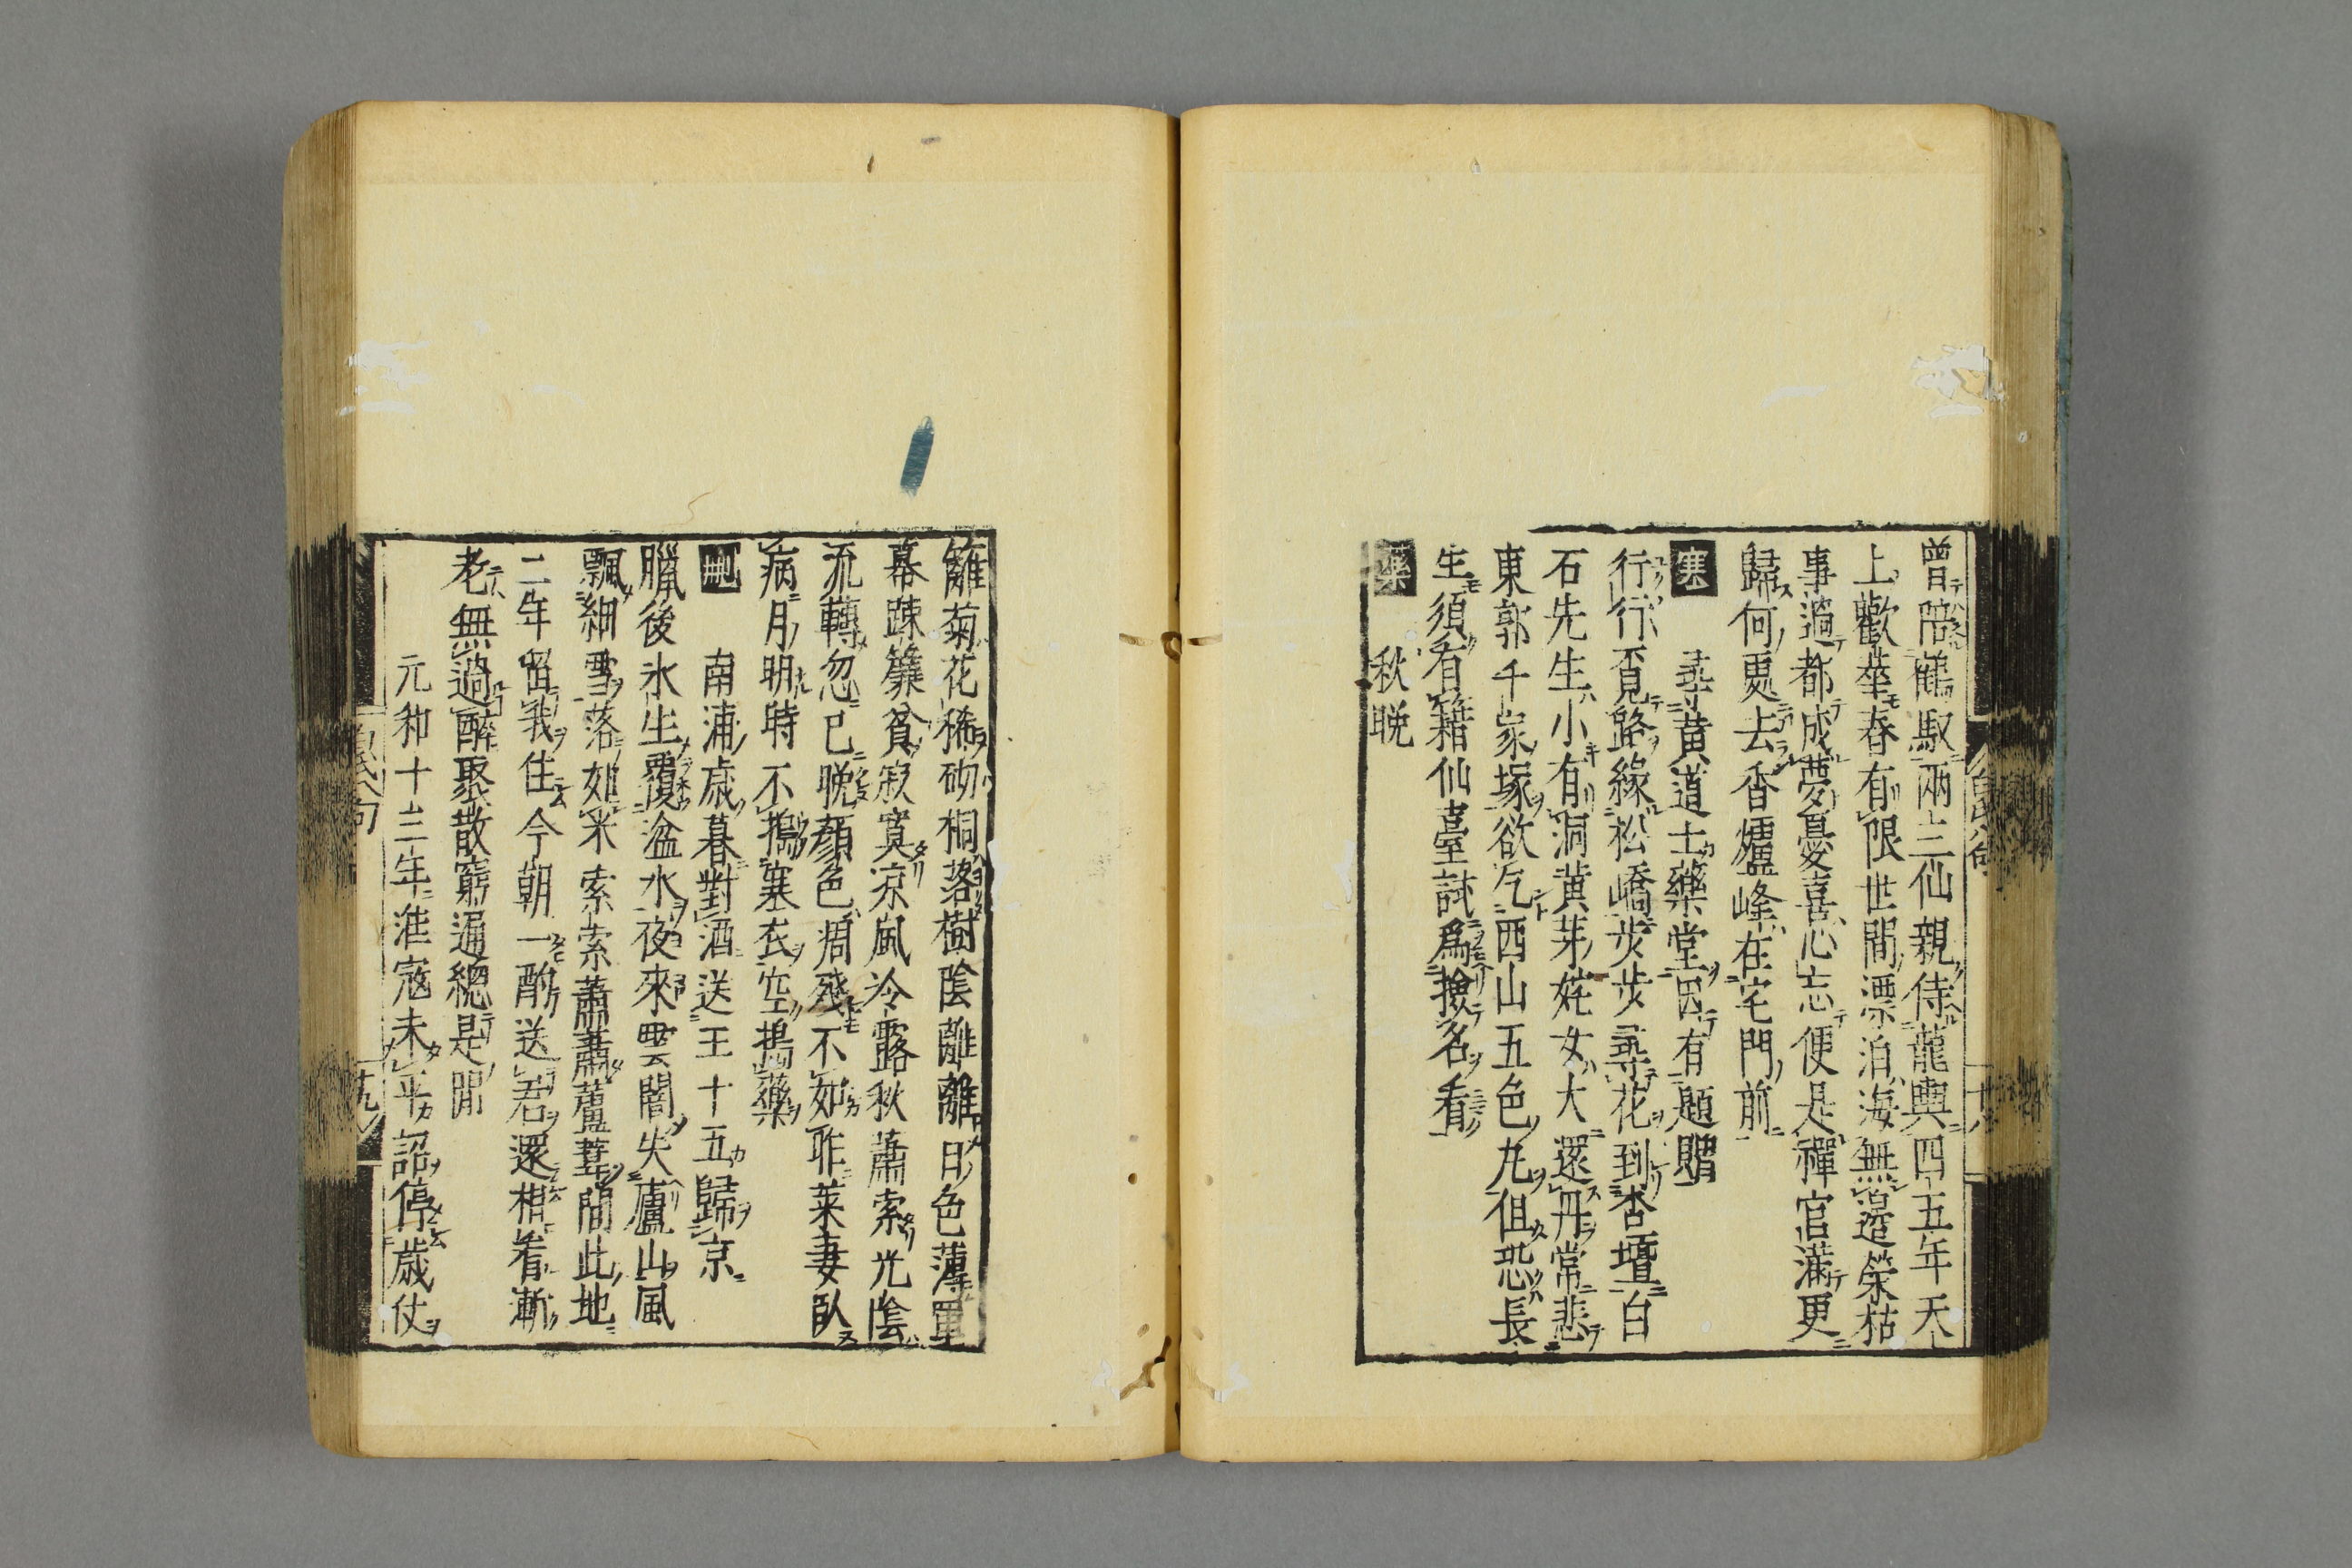 曾陪鶴馭兩三仙親侍龍輿四五年天
上歡華春有限世間漂泊海無邊榮枯
事過都成夢憂喜心忘便是禪官滿更
歸何處去香爐峰在宅門前
寒　尋黄道士藥堂因有題贈
行行覓路緣松嶠步步尋花到杏壇白
石先生小有洞黄芽姹女大還丹常悲
東郭千家塚欲乞西山五色丸但恐長
生須有籍仙臺試爲撿名看
藥　秋晩
籬菊花稀砌桐落樹陰離離日色薄單
幕疎簾貧寂寞凉風冷露秋蕭索光陰
流轉忽已晩顔色凋殘不如昨莱妻臥
病月明時不搗寒衣空搗藥
刪　南浦歳暮對酒送王十五歸京
臘後氷生覆湓水夜來雲闇失廬山風
飄細雪落如米索索蕭蕭蘆葦間此地
二年留我住今朝一酌送君還相看漸
老無過醉聚散窮通總是閒
元和十三年淮寇未平詔停歳仗